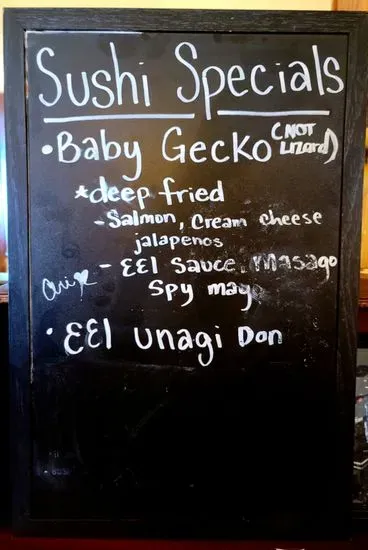 Sushi Specials
• Baby Gecko (NOT Lizard)
*deep fried
- Salmon, Cream cheese
jalapenos
- EEl Sauce, Masago
Spy mayo
• EEl Unagi Don